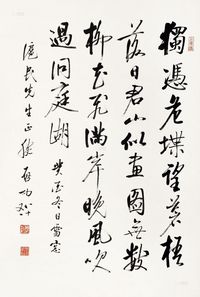 獨憑危堞望蒼梧
落日君山似畫圖無數
柳花飛滿岸晚風吹
過洞庭湖 癸酉冬日書
先生正 啟功